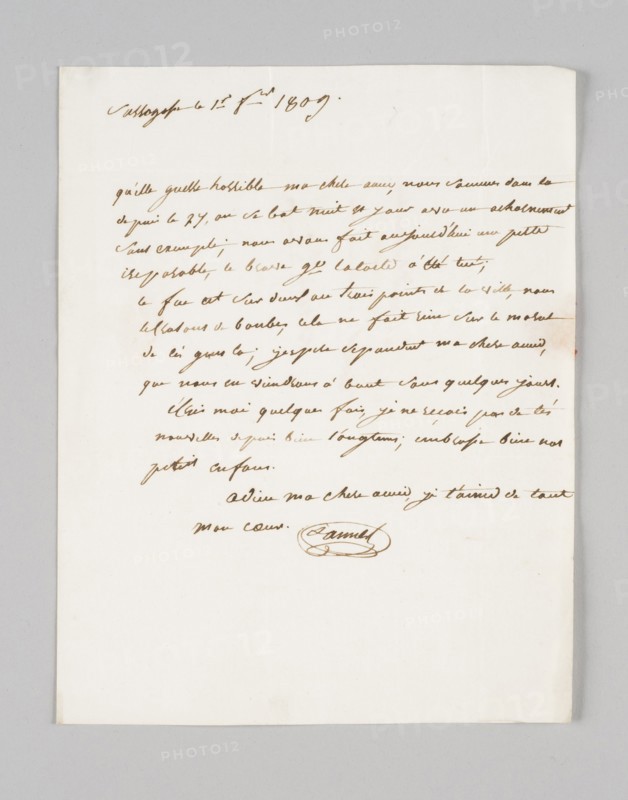 Sarragosse le 1er fer 1809.
qu'elle guerre horrible ma chere amie, nous sommes dans la
depuis le 27, on se bat nuit et jour avec un acharnement
sans exemple; nous avons fait aujourd'hui une perte
ireparable, le brave gal lacoste a été tué;
le feu est sur deux ou trois points de la ville, nous
l'ecrasons de bombes, cela ne fait rien sur le moral
de ces gens la; j'espere cependant ma chere amie,
que nous en viendrons à bout sous quelques jours.
Écris moi quelques fois, je ne reçois pas de tes
nouvelles depuis bien longtems; embrasse bien nos
petits enfans.
adieu ma chere amie, je t'aime de tout
mon cœur. Lannes
PHOTO12